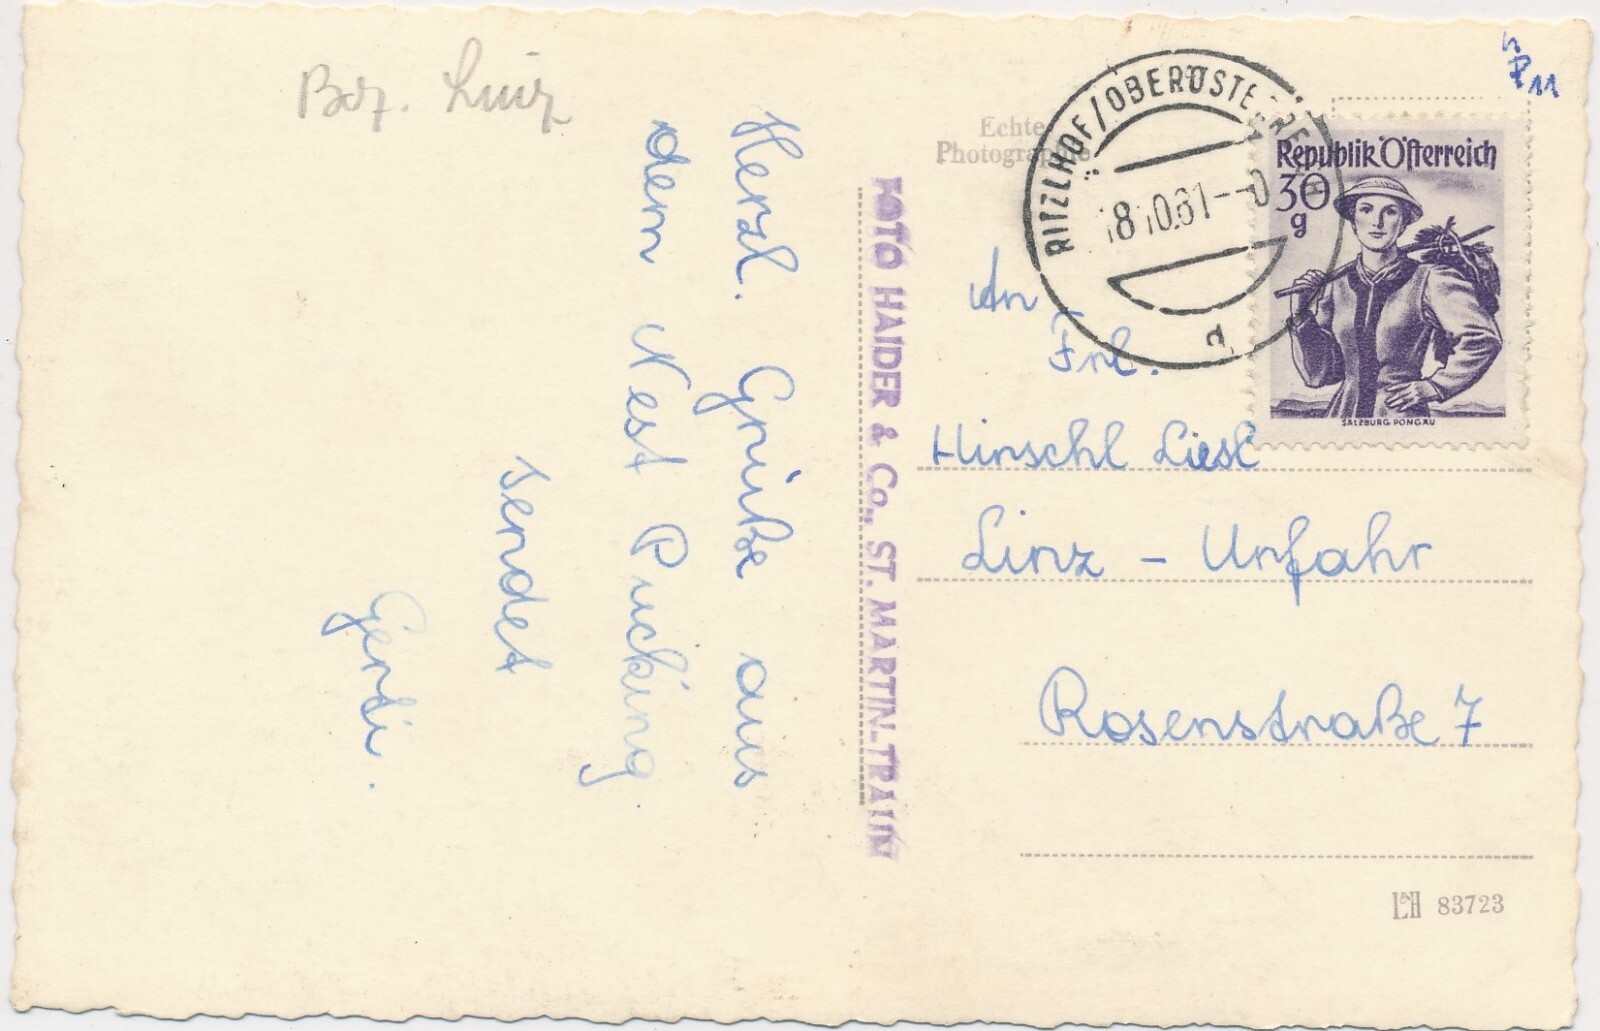 Bez. Linz
Herzl. Grüße aus
dem Nest Pucking
sendet
Gerti.
FOTO HAIDER & Co., ST. MARTIN-TRAUN
Echte
Photographie
RITZLHOF/OBERÖSTERREICH
18.10.61--
d
Republik Österreich
30
g
SALZBURG, PONGAU
P 11
An
Frl.
Hirschl Liesl
Linz - Urfahr
Rosenstraße 7
L&H 83723